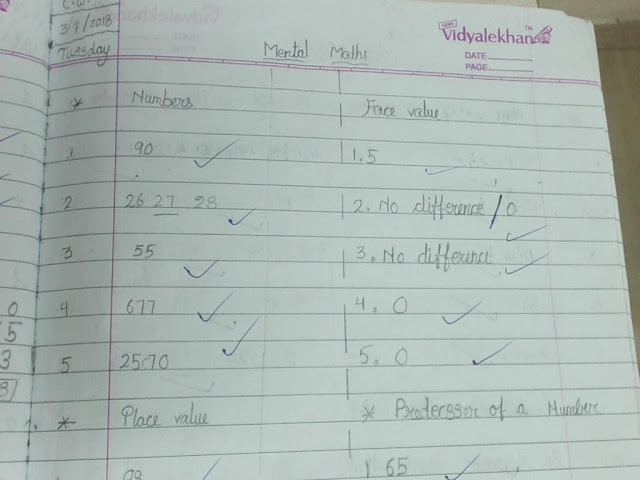 C.W.
3/7/2018
Tuesday
Vidyalekhan™
DATE
PAGE
Mental Maths
* Numbers
1 90
2 26 27 28
3 55
4 677
5 25670
* Place value
98
Face value
1. 5
2. No difference / 0
3. No difference
4. 0
5. 0
* Predecssor of a Number
1 65
0
5
3